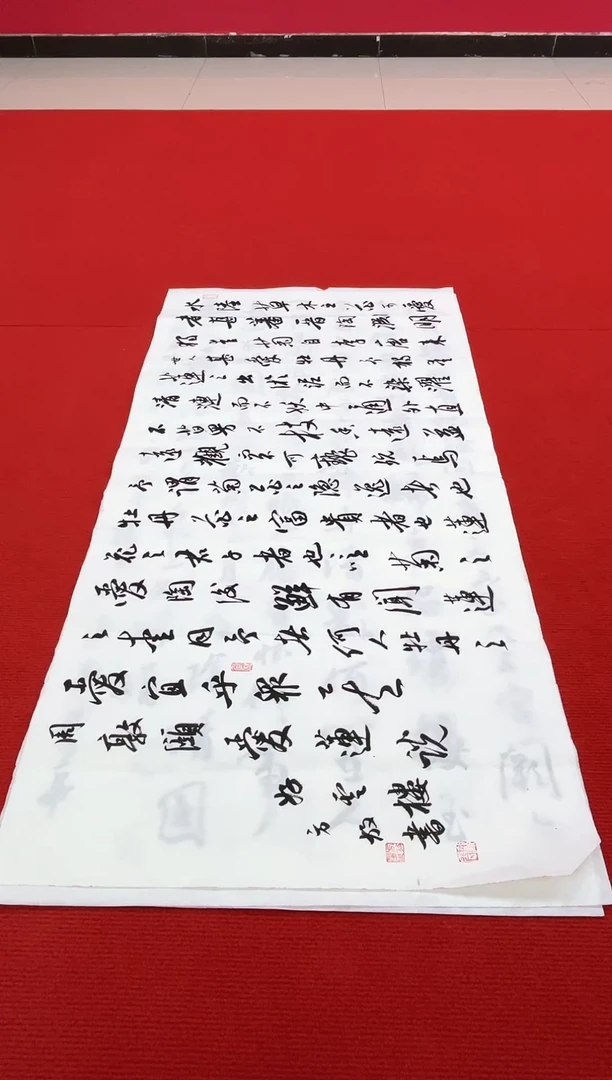 水陸草木之花可愛
者甚蕃晋陶淵明
獨愛菊自李唐來
世人甚愛牡丹予獨愛
蓮之出淤泥而不染濯
清漣而不妖中通外直
不蔓不枝香遠益
遠觀不可褻玩焉
予謂菊花之隐逸者也
牡丹花之富貴者也蓮
花之君子者也噫菊之
愛陶後鮮有聞蓮
之愛同予者何人牡丹之
愛宜乎眾矣
周敦頤愛蓮说
雲樓
方書